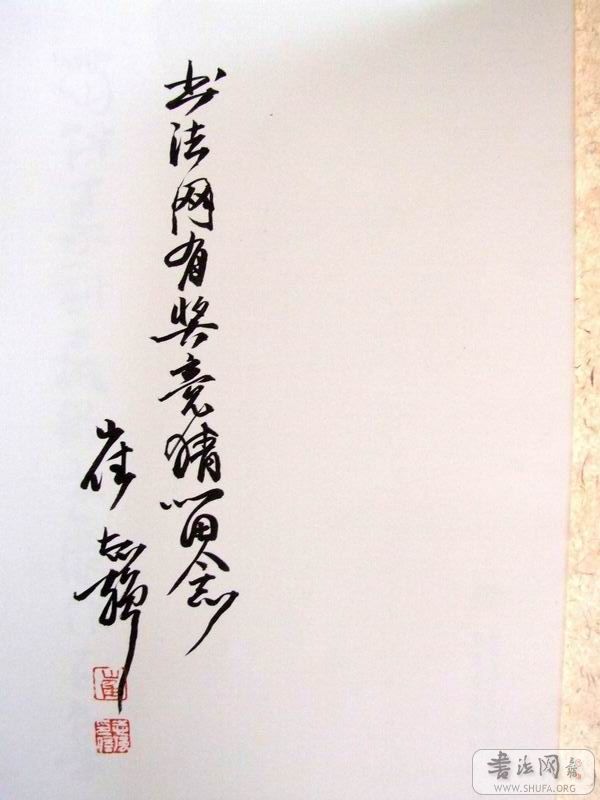 书法网有奖竞猜留念
崔志强
书法网
WWW.SHUFA.ORG